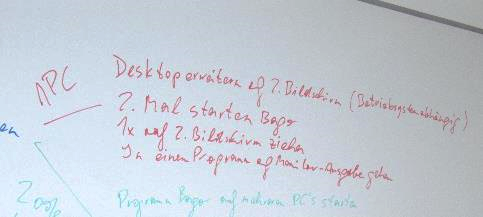 1PC
Desktop erweitern auf 2. Bildschirm (Betriebssystemabhängig)
2. Mal starten Bogr
1x auf 2. Bildschirm ziehen
In einen Programm auf Monitor-Ausgabe gehen
en
Programm Bogr auf mehreren PC's starten